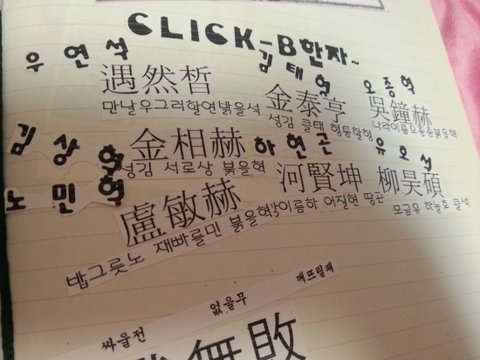 CLICK-B한자~
우연석
김태형
오종혁
遇然晳
金泰亨
吳鐘赫
만날우그러할연밝을석
성김 클태 형통할형
나라이름오종종붉을혁
김상혁
하현곤
유호석
金相赫
河賢坤
柳昊碩
성김 서로상 붉을혁
강이름하 어질현 땅곤
모금유 하늘호 클석
노민혁
盧敏赫
밥그릇노 재빠를민 붉을혁
싸울전 없을무 깨뜨릴패
無敗